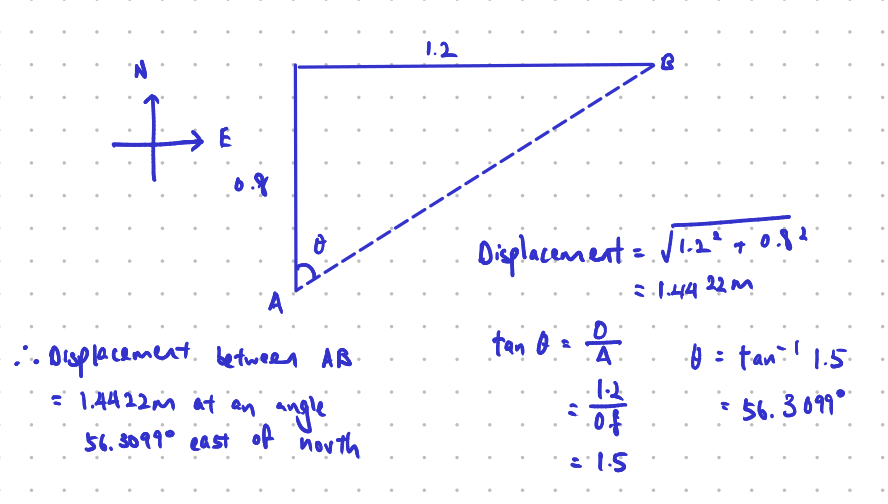 1.2
B
N
E
0.8
θ
A
Displacement = √1.2² + 0.8²
= 1.4422m
tan θ = O/A
= 1.2/0.8
= 1.5
θ = tan⁻¹ 1.5
= 56.3099°
∴ Displacement between AB
= 1.4422m at an angle
56.3099° east of north